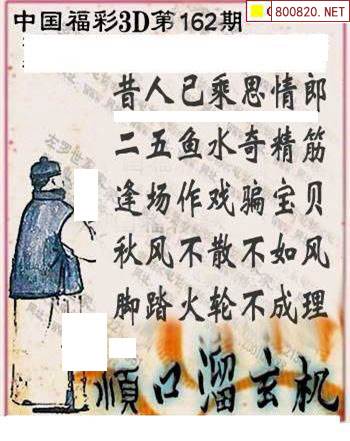 800820.NET
中国福彩3D第162期
昔人已乘思情郎
二五鱼水奇精筋
逢场作戏骗宝贝
秋风不散不如风
脚踏火轮不成理
顺口溜玄机